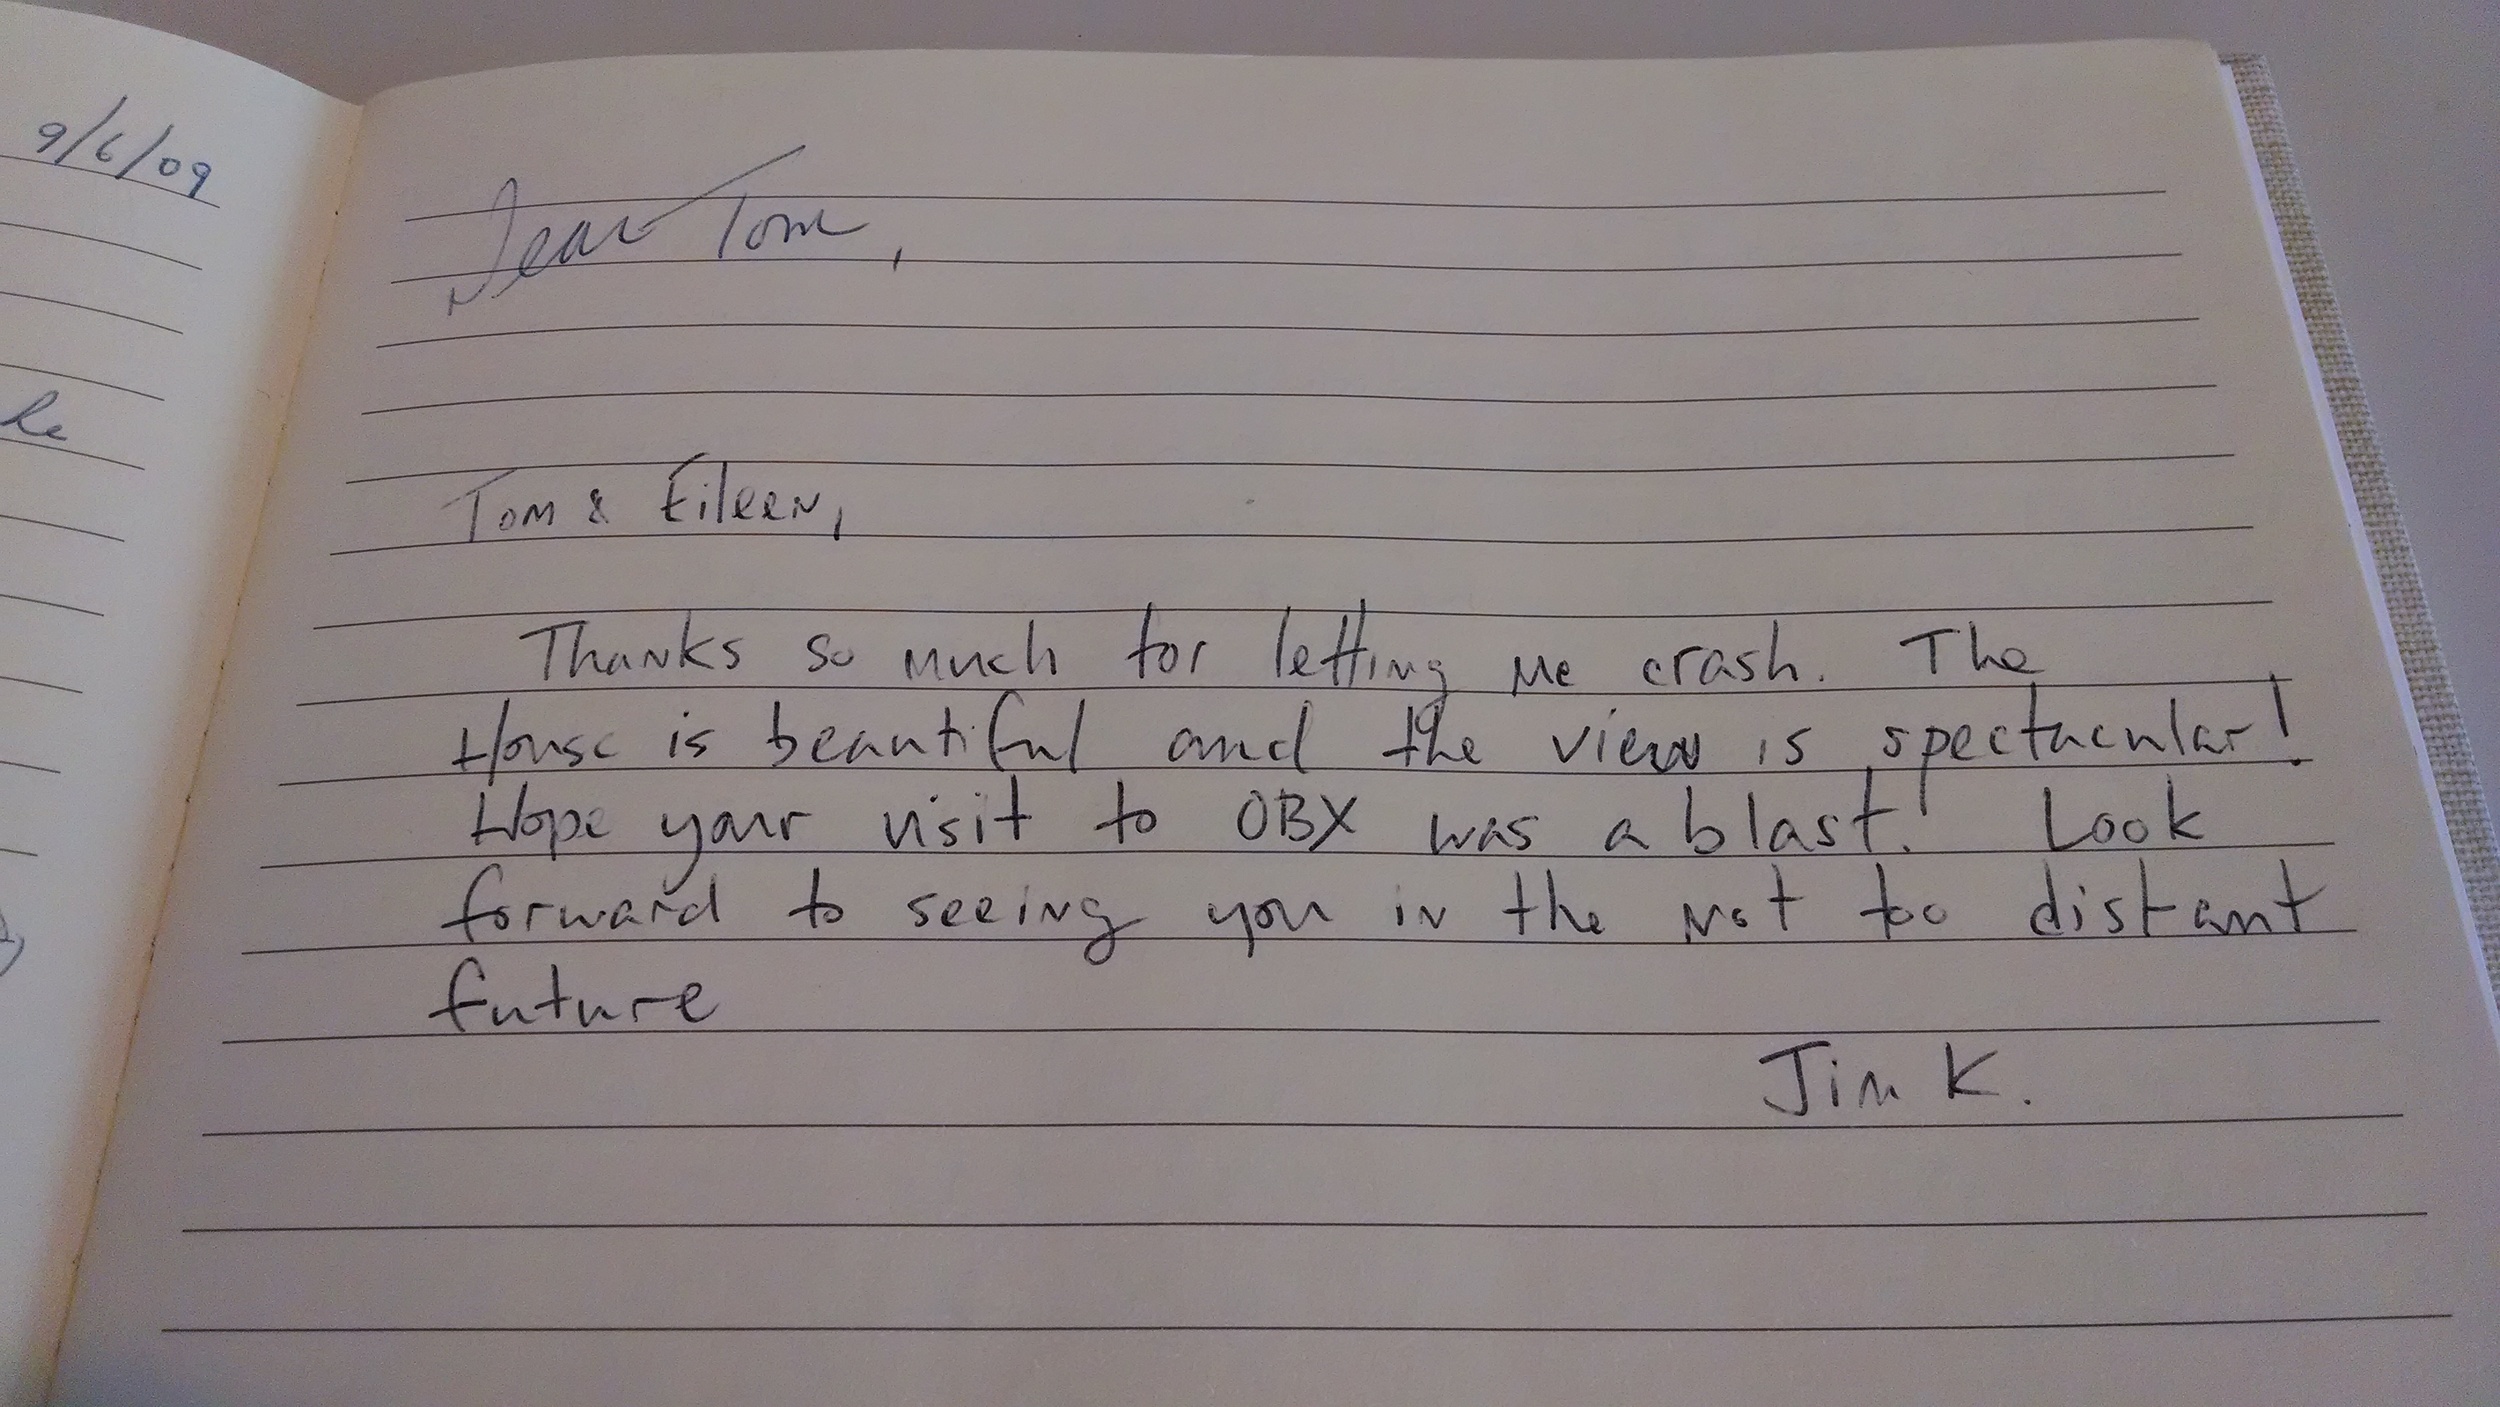 9/6/09
Dear Tom,
Tom & Eileen,
Thanks so much for letting me crash. The
House is beautiful and the view is spectacular!
Hope your visit to OBX was a blast! Look
forward to seeing you in the not too distant
future
Jim K.